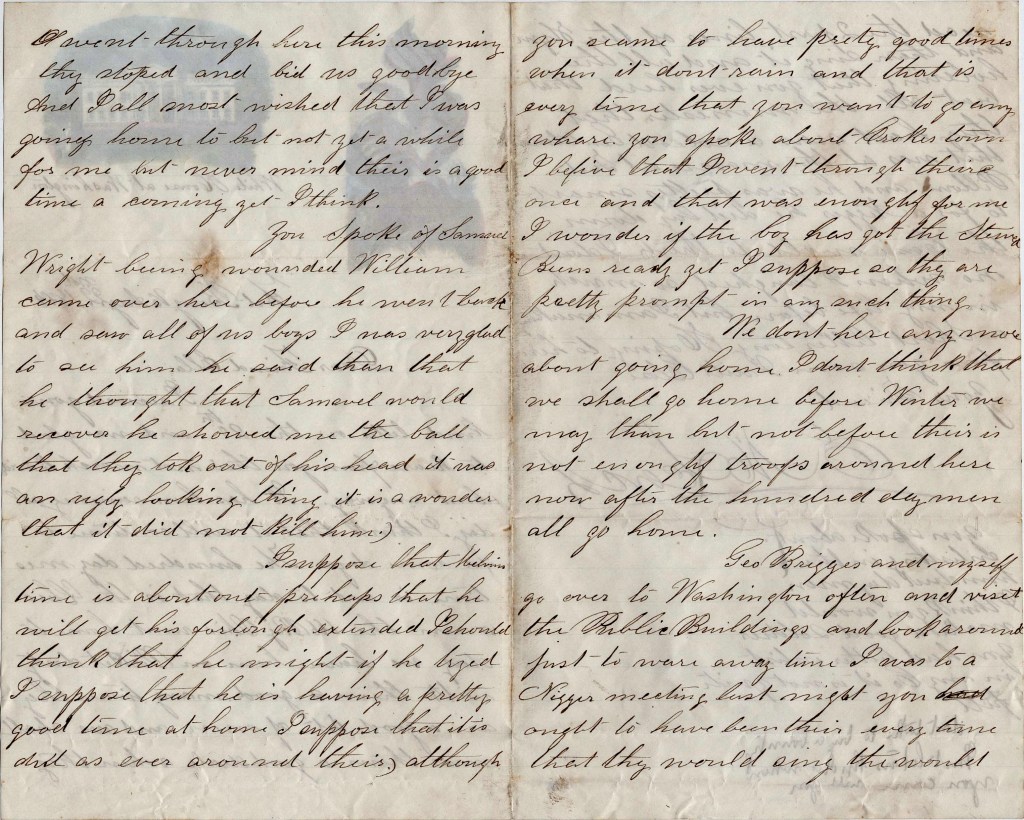 I went through here this morning
thy stoped and bid us goodbye
And I all most wished that I was
going home to but not yet a while
for me but never mind their is a good
time a coming yet I think.
You Spoke of Samuel
Wright being wounded William
came over here before he went back
and saw all of us boys I was very glad
to see him he said than that
he thought that Samuel would
recover he showed me the ball
that they tok out of his head it was
an ugly looking thing it is a wonder
that it did not kill him.)
I suppose that Melvins
time is about out prehaps that he
will get his forlough extended I should
think that he might if he tryed
I suppose that he is having a pretty
good time at home I suppose that it is
dul as ever around their,) although
you seame to have pretty good times
when it dont rain and that is
every time that you want to go any
whare. you spoke about Crokes town
I belive that I went through their
once and that was enoughf for me
I wonder if the boy has got the
Beens ready yet I suppose so they are
pretty prompt in any such thing
We dont here any more
about going home I dont think that
we shall go home before Winter we
may than but not before their is
not enoughf troops around here
now after the hundred day men
all go home.
Geo Brigges and myself
go over to Washington often and viset
the Public Buildings and look around
just to ware away time I was to a
Nigger meeting last night you had
ought to have been their every time
that thy would sing the would